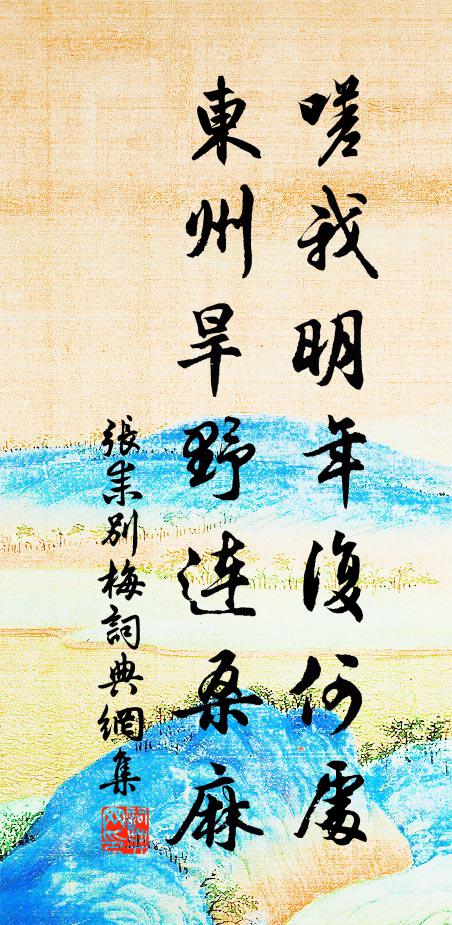 嗟我明年復何處
東州旱野連桑麻
張耒別梅詞典網集